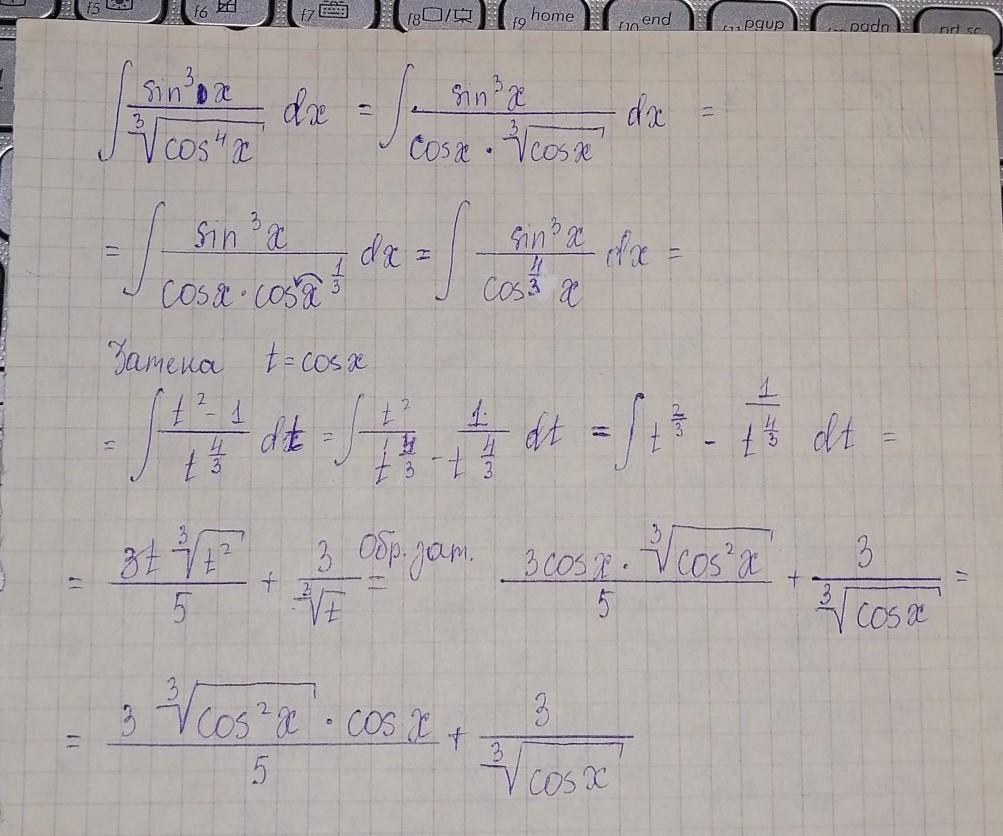 f5 f6 f7 f8 /  f9 home f10 end pgup pgdn prt sc
∫ sin³x / ∛(cos⁴x) dx = ∫ sin³x / (cosx · ∛(cosx)) dx =
= ∫ sin³x / (cosx · cosx^(1/3)) dx = ∫ sin³x / (cos^(4/3) x) dx =
Замена t = cosx
= ∫ (t² - 1) / t^(4/3) dt = ∫ t² / t^(4/3) - 1 / t^(4/3) dt = ∫ t^(2/3) - 1 / t^(4/3) dt =
= 3t ∛(t²) / 5 + 3 / ∛t = Обр. зам. 3cosx · ∛(cos²x) / 5 + 3 / ∛(cosx) =
= 3 ∛(cos²x) · cosx / 5 + 3 / ∛(cosx)